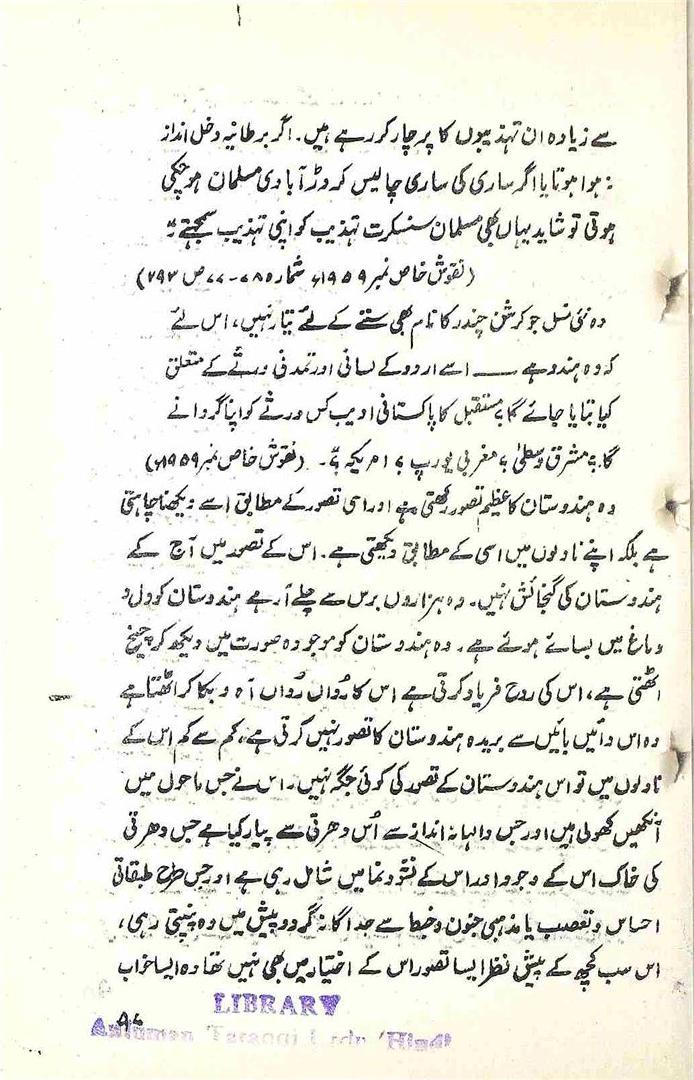 سے زیادہ ان تہذیبوں کا پرچار کر رہے ہیں۔ اگر برطانیہ دخل انداز
نہ ہوا ہوتا یا اگر ساری کی ساری چالیس کروڑ آبادی مسلمان ہو چکی
ہوتی تو شاید یہاں بھی مسلمان سنسکرت تہذیب کو اپنی تہذیب سمجھتے"
(نقوش خاص نمبر ۱۹۵۹ء شمارہ ۷۸-۷۷ ص ۲۹۳)
وہ نئی نسل جو کرشن چندر کا نام بھی سننے کے لئے تیار نہیں، اس لئے
کہ وہ ہندو ہے ــــــ اسے اردو کے لسانی اور تمدنی ورثے کے متعلق
کیا بتایا جائے گا؟ مستقبل کا پاکستانی ادیب کس ورثے کو اپنا گردانے
گا؟ مشرق وسطیٰ؟ مغربی یورپ؟ امریکہ؟"۔ (نقوش خاص نمبر ۱۹۵۹ء)
وہ ہندوستان کا عظیم تصور رکھتی ہے اور اسی تصور کے مطابق اسے نہ دیکھنا چاہتی
ہے بلکہ اپنے ناولوں میں اسی کے مطابق دیکھتی ہے۔ اس کے تصور میں آج کے
ہندوستان کی گنجائش نہیں۔ وہ ہزاروں برس سے چلے آ رہے ہندوستان کو دل و
دماغ میں بسائے ہوئے ہے۔ وہ ہندوستان کو موجودہ صورت میں دیکھ کر چیخ
اٹھتی ہے، اس کی روح فریاد کرتی ہے اس کا رُواں رُواں آہ و بکا کر اٹھتا ہے
وہ اس دائیں بائیں سے بریدہ ہندوستان کا تصور نہیں کرتی ہے، کم سے کم اس کے
ناولوں میں تو اس ہندوستان کے تصور کی کوئی جگہ نہیں۔ اس نے جس ماحول میں
آنکھیں کھولی ہیں اور جس والہانہ انداز سے اُس دھرتی سے پیار کیا ہے جس دھرتی
کی خاک اس کے وجود اور اس کے نشوونما میں شامل رہی ہے اور جس طرح طبقاتی
احساس و تعصب یا مذہبی جنون و خبط سے جداگانہ گردوپیش میں وہ پنپتی رہی،
اس سب کچھ کے پیش نظر ایسا تصور اس کے اختیار میں بھی نہیں تھا وہ ایسا خواب
LIBRARY
Anjuman Taraqqi Urdu 'Hind'